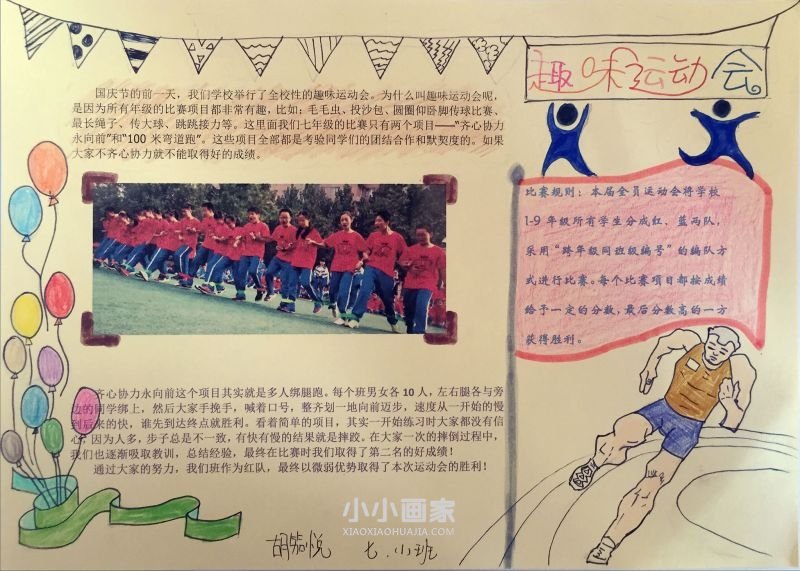 趣味运动会
国庆节的前一天，我们学校举行了全校性的趣味运动会。为什么叫趣味运动会呢，
是因为所有年级的比赛项目都非常有趣，比如：毛毛虫、投沙包、圆圈仰卧脚传球比赛、
最长绳子、传大球、跳跳接力等。这里面我们七年级的比赛只有两个项目——“齐心协力
永向前”和“100 米弯道跑”。这些项目全部都是考验同学们的团结合作和默契度的。如果
大家不齐心协力就不能取得好的成绩。
比赛规则：本届全员运动会将学校
1-9 年级所有学生分成红、蓝两队，
采用“跨年级同班级编号”的编队方
式进行比赛。每个比赛项目都按成绩
给予一定的分数，最后分数高的一方
获得胜利。
齐心协力永向前这个项目其实就是多人绑腿跑。每个班男女各 10 人，左右腿各与旁
边的同学绑上，然后大家手挽手，喊着口号，整齐划一地向前迈步，速度从一开始的慢
到后来的快，谁先到达终点就胜利。看着简单的项目，其实一开始练习时大家都没有信
心，因为人多，步子总是不一致，有快有慢的结果就是摔跤。在大家一次的摔倒过程中，
我们也逐渐吸取教训，总结经验，最终在比赛时我们取得了第二名的好成绩！
通过大家的努力，我们班作为红队，最终以微弱优势取得了本次运动会的胜利！
小小画家
XIAOXIAOHUAJIA.COM
胡 悦 七.小班